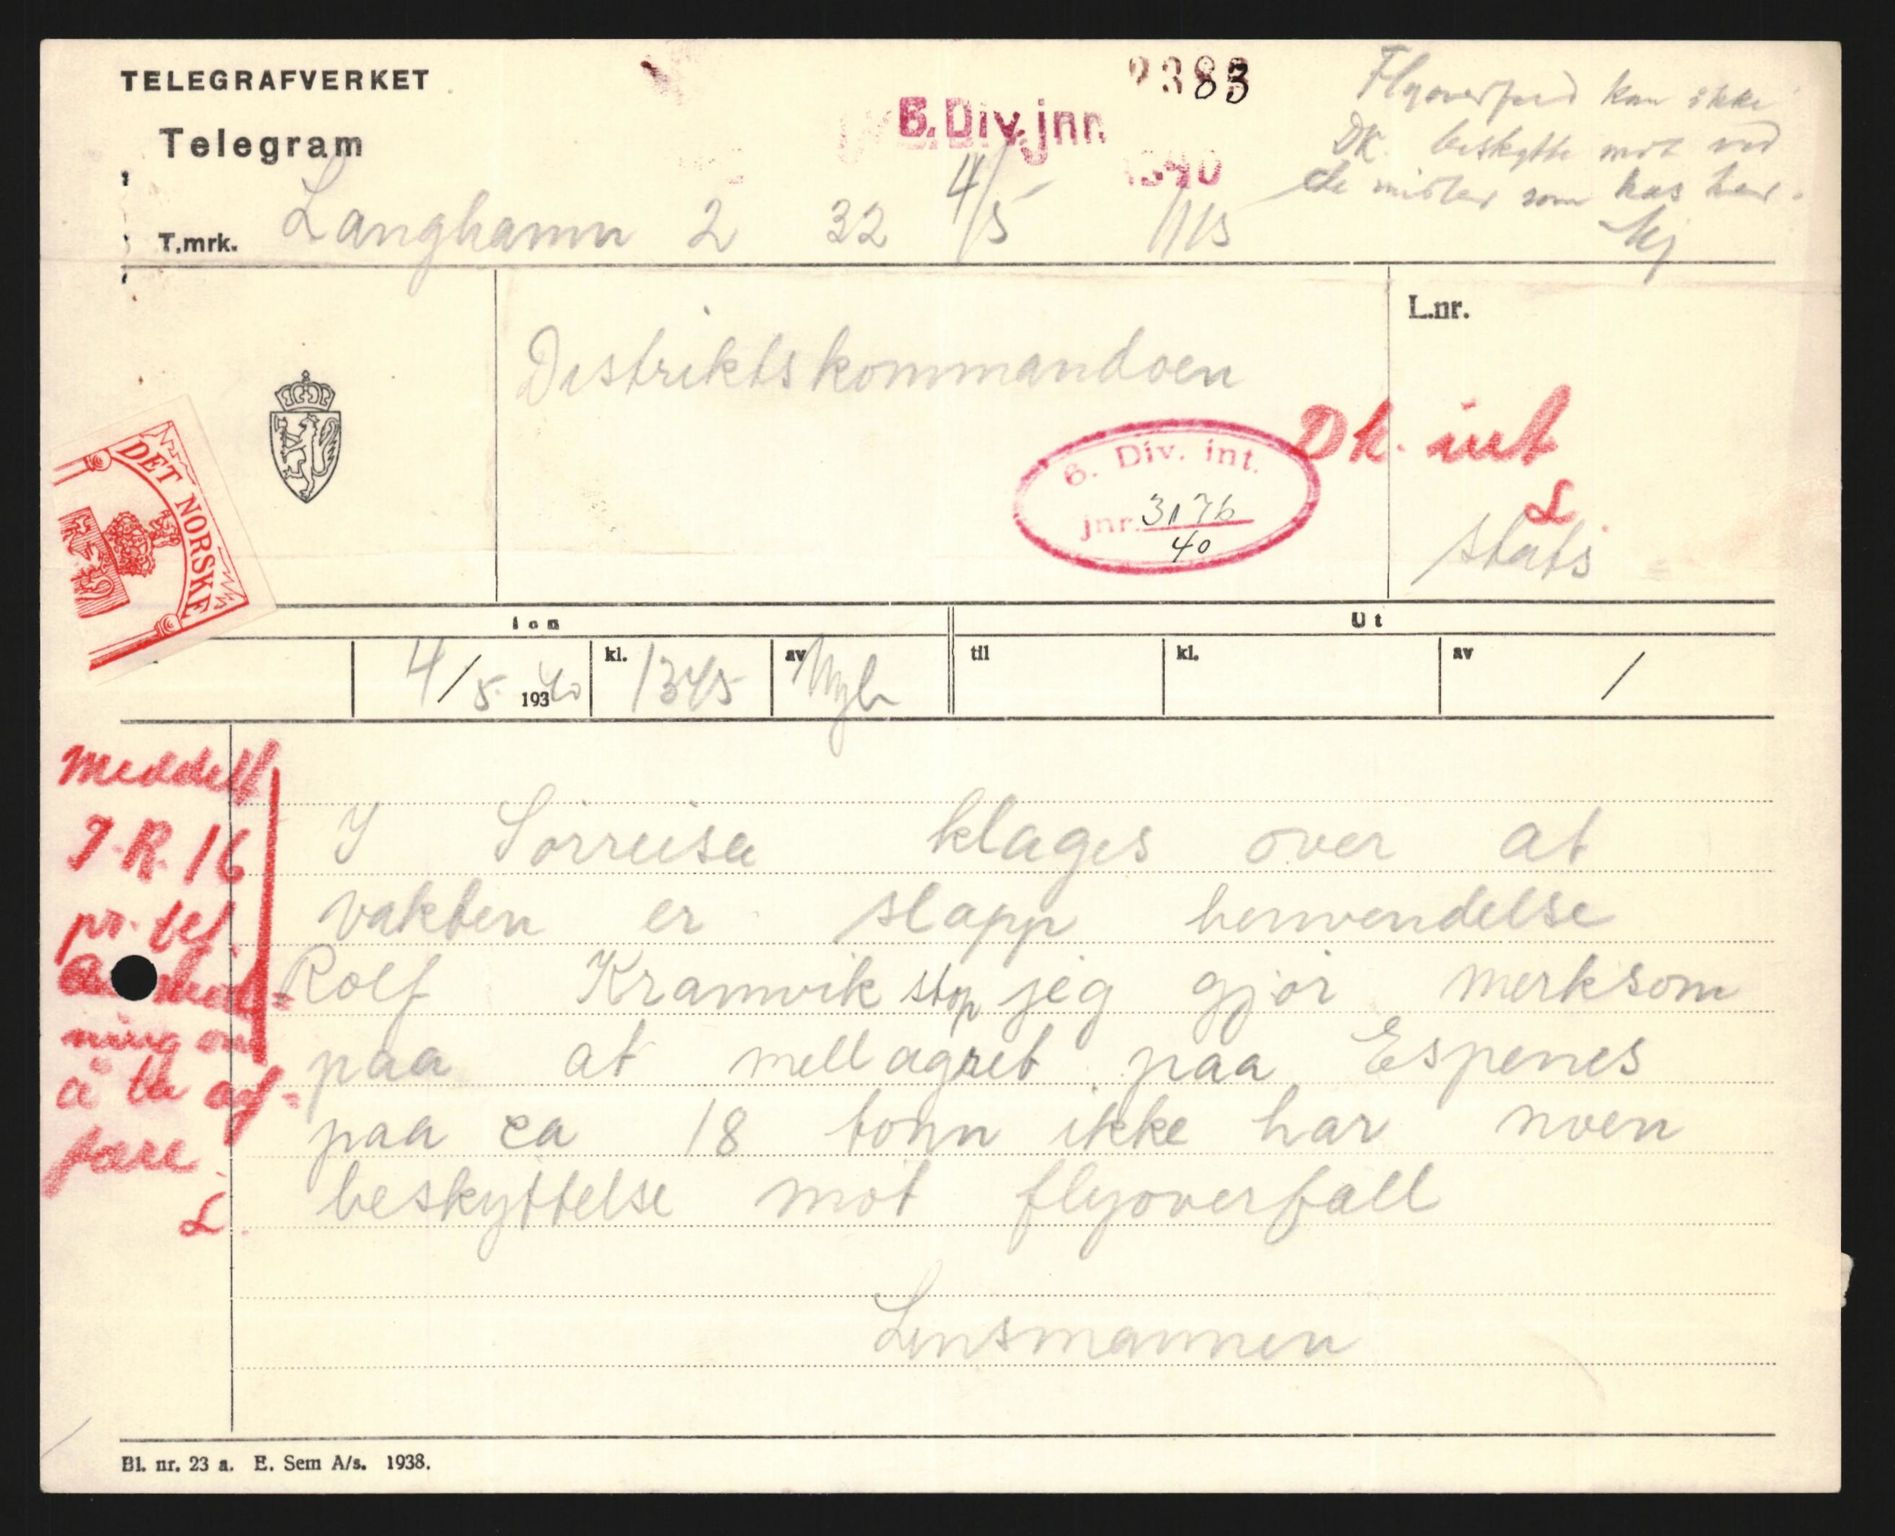 TELEGRAFVERKET
Telegram
2383
6. Div. jnr.
1940
Flyoverfall kan ikke
DK. beskytte mot ved
de midler som has her.
T.mrk. Langhamn 2 32 4/5 1115
L.nr.
Distriktskommandoen
Dk. int
L.
6. Div. int.
jnr. 3176
40
stats
DET NORSKE
Ut
4/5 1940 kl. 1345 av til kl. av /
Meddelt
I.R. 16
pr. tel.
ning om
å ta af-
fære.
L.
I Sørreisa klages over at
vakten er slapp henvendelse
Rolf Kramvik stop jeg gjør merksom
paa at mellagret paa Espenes
paa ca 18 tonn ikke har noen
beskyttelse mot flyoverfall
Lensmannen
Bl. nr. 23 a. E. Sem A/s. 1938.